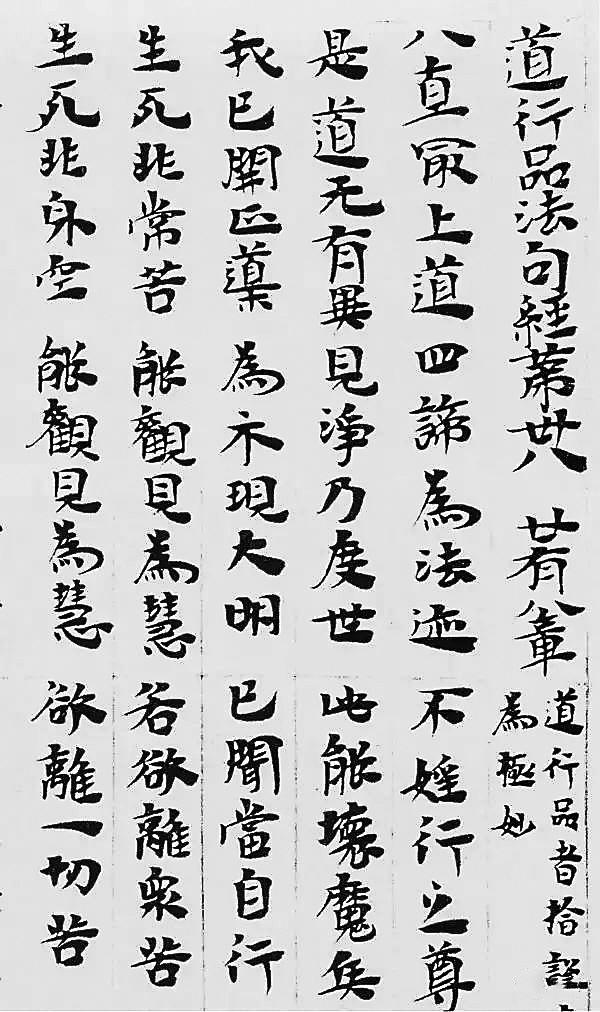 道行品法句經苐卅八 廿有八章
道行品者
為極妙
八直冣上道 四諦為法迹 不婬行之尊
是道无有異 見淨乃度世 此能壞魔兵
我已開正道 為示現大明 已聞當自行
生死非常苦 能觀見為慧 若欲離衆苦
生死非身空 能觀見為慧 欲離一切苦